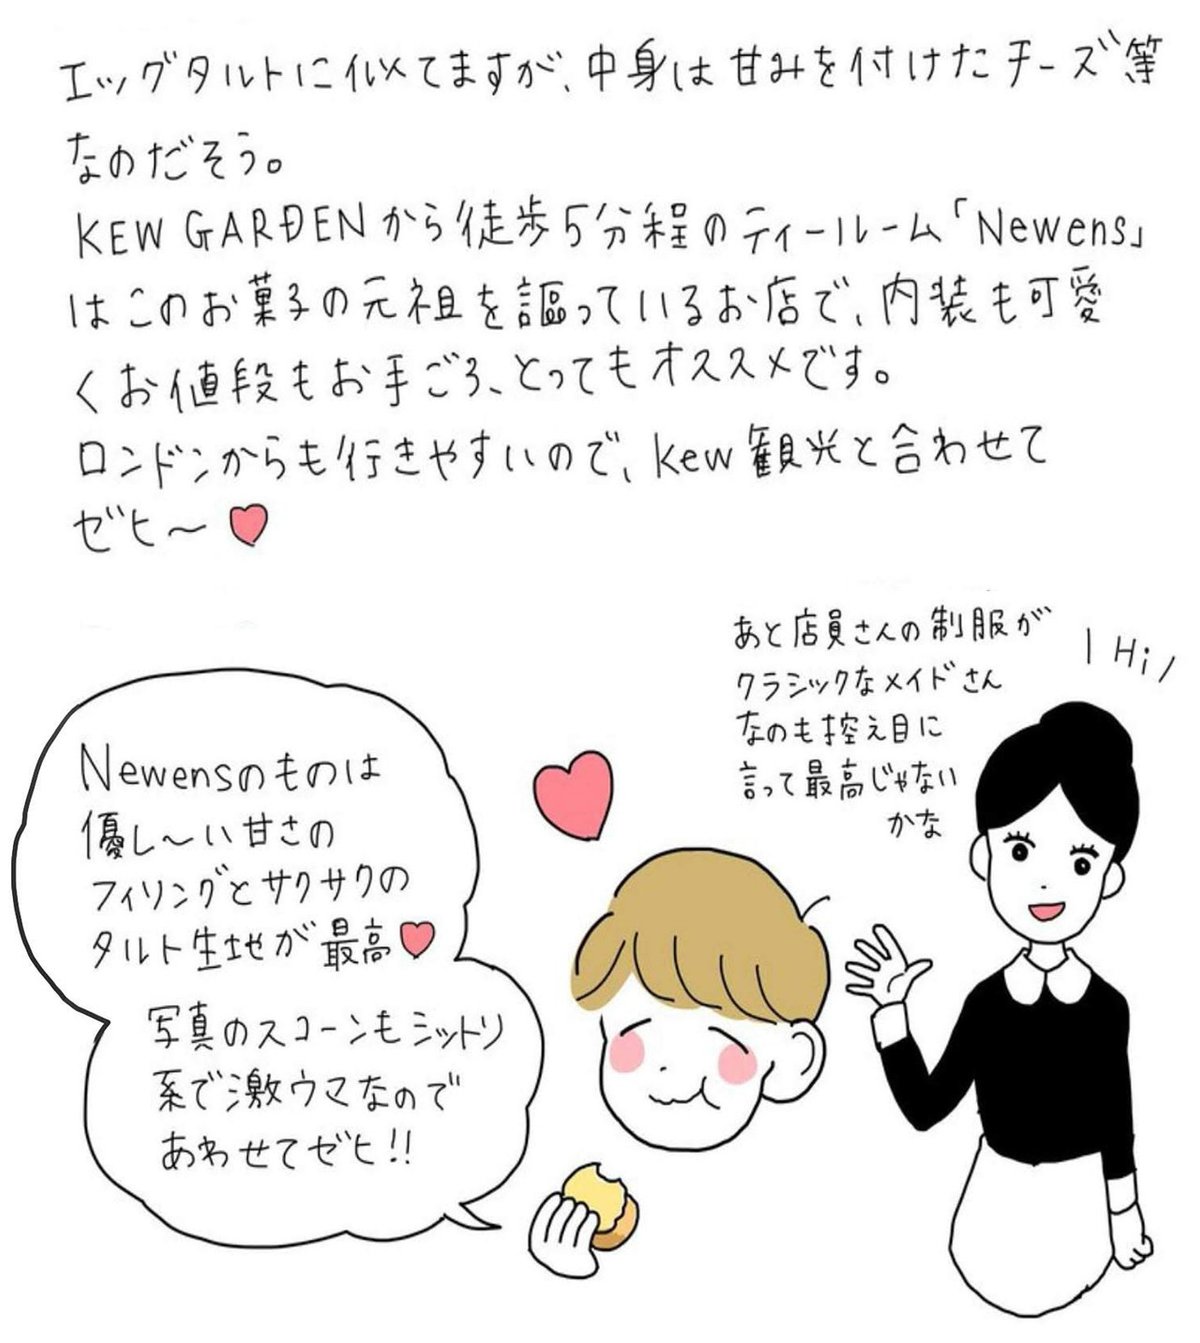 エッグタルトに似てますが、中身は甘みを付けたチーズ等
なのだそう。
KEW GARDENから徒歩5分程のティールーム「Newens」
はこのお菓子の元祖を謳っているお店で、内装も可愛
くお値段もお手ごろ、とってもオススメです。
ロンドンからも行きやすいので、Kew観光と合わせて
ゼヒ〜
あと店員さんの制服が
クラシックなメイドさん
なのも控え目に
言って最高じゃない
かな
Hi
Newensのものは
優し〜い甘さの
フィリングとサクサクの
タルト生地が最高
写真のスコーンもミットリ
系で激ウマなので
あわせてゼヒ!!